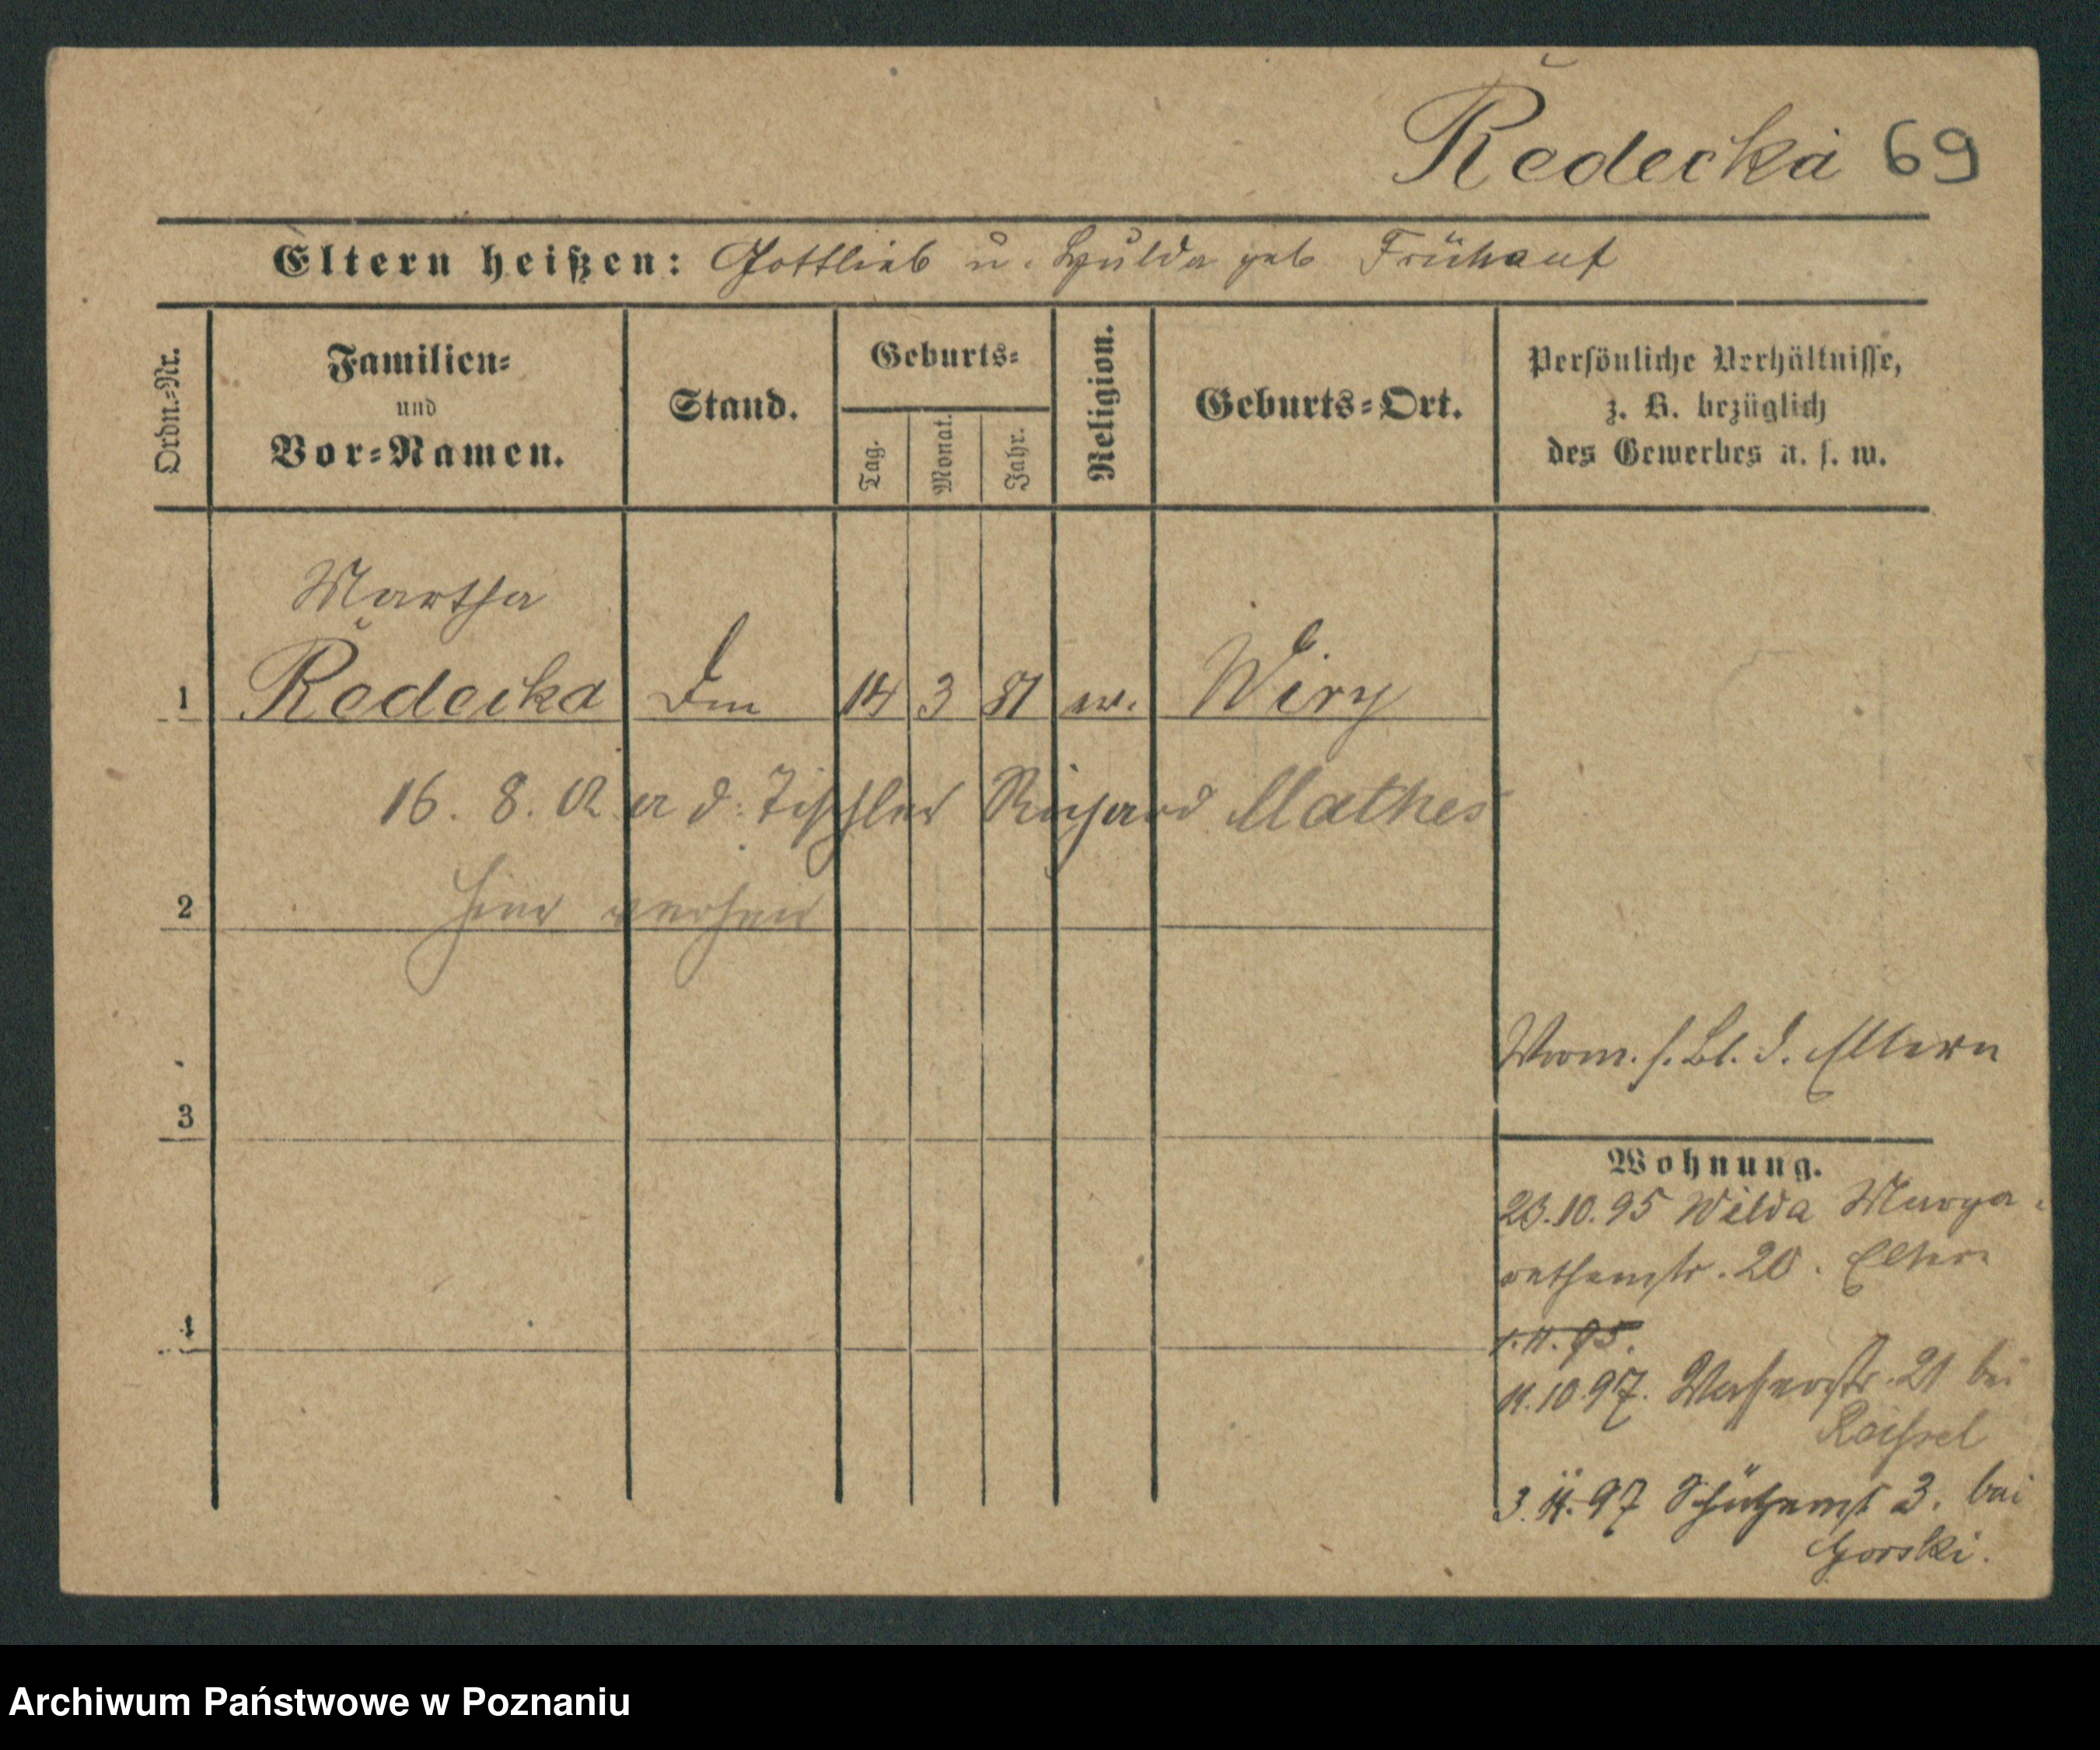 Redecka 69
Eltern heißen: Gottlieb u. Hulda geb Frühauf
Ordn.=Nr.
Familien=
und
Vor=Namen.
Stand.
Geburts=
Tag.
Monat.
Jahr.
Religion.
Geburts=Ort.
Persönliche Verhältnisse,
z. B. bezüglich
des Gewerbes u. s. w.
Martha
1 Redecka 14 3 81 ev. Wiry
16. 8. 02 d. Tischler Richard Mathes
2 hier verheir
3
4
Vorm. s. Bl. d. Eltern
Wohnung.
23.10.95 Wilda Marga=
rethenstr. 20. Eltern
1.11.95.
11.10.97. Wasserstr. 21 bei
3.11.97 Schützenst 3. bei
Gorski.
Archiwum Państwowe w Poznaniu